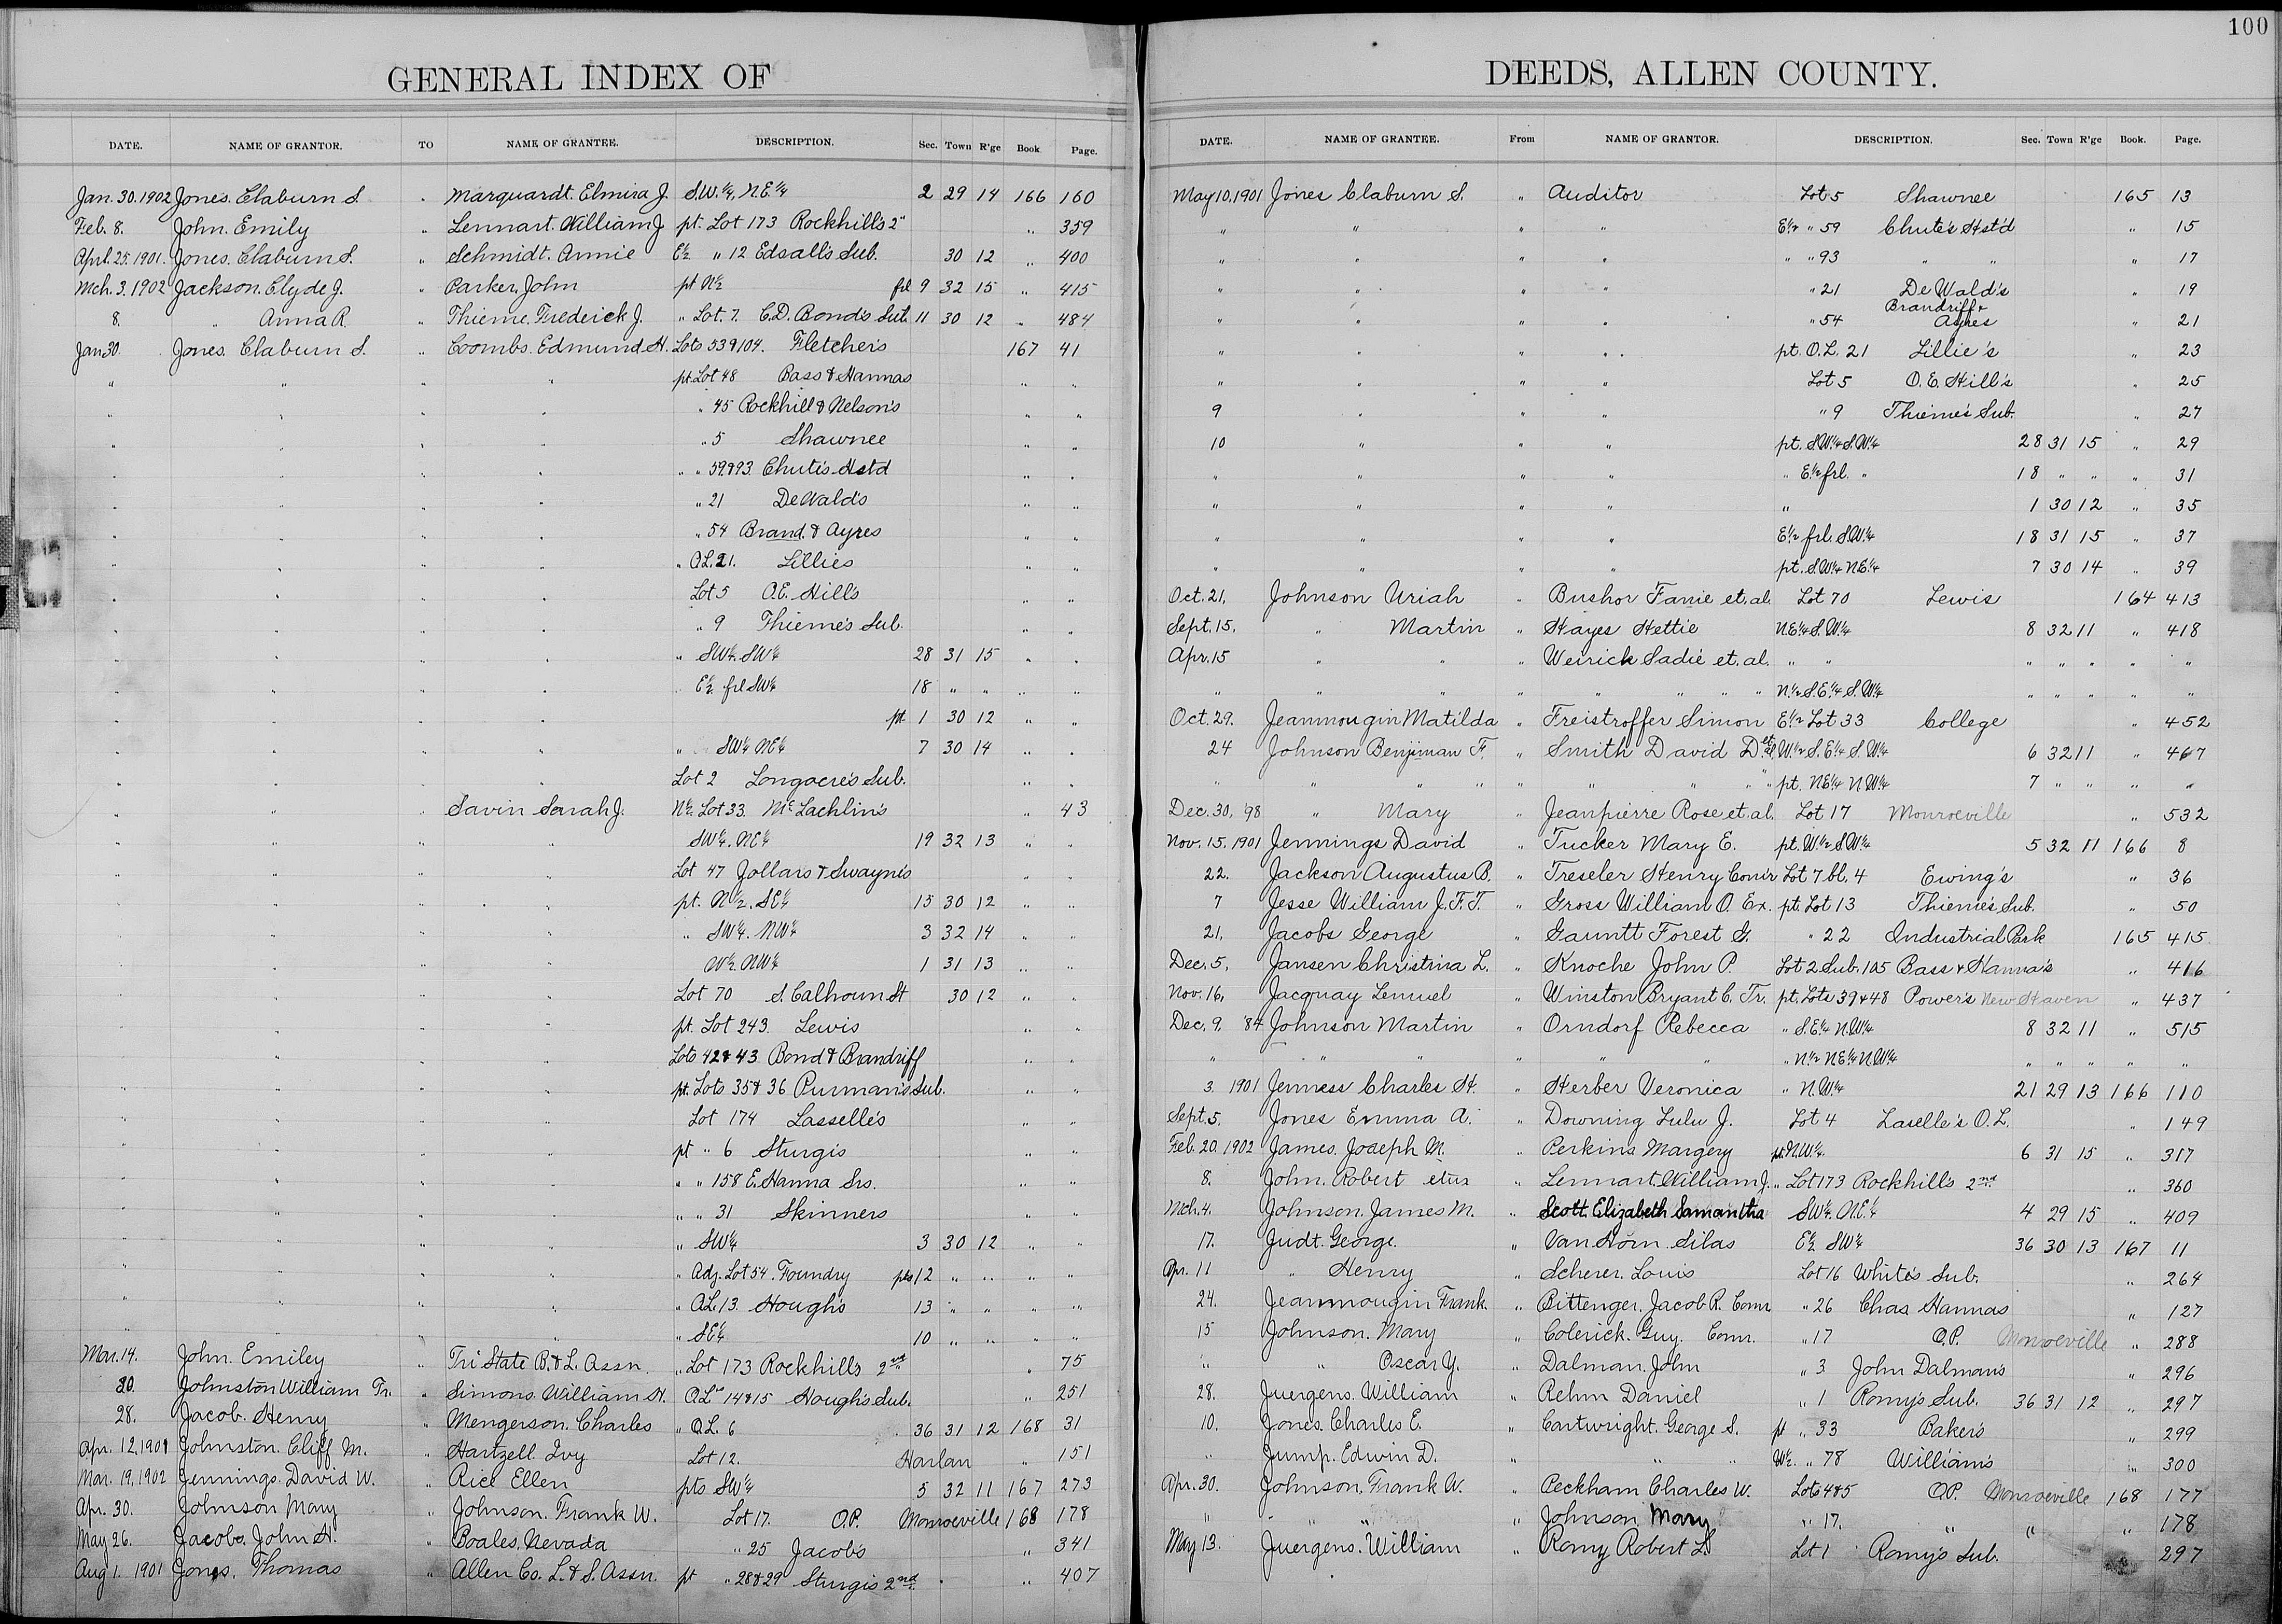 100
GENERAL INDEX OF
DATE. NAME OF GRANTOR. TO NAME OF GRANTEE. DESCRIPTION. Sec. Town R'ge Book. Page.
Jan. 30. 1902 Jones. Claburn S. " Marquardt. Elmira J. S.W.1/4, N.E.1/4 2 29 14 166 160
Feb. 8. John. Emily " Lennart. William J pt. Lot 173 Rockhill's 2" " 359
Aprl. 25. 1901. Jones. Claburn S. " Schmidt. Annie E1/2 " 12 Edsall's Sub. 30 12 " 400
Mch. 3. 1902 Jackson. Clyde J. " Parker, John pt N1/2 frl 9 32 15 " 415
8. " Anna R. " Thieme. Frederick J. " Lot. 7. C.D. Bond's Sub. 11 30 12 " 484
Jan 30 Jones. Claburn S. " Coombs. Edmund. H. Lots 53&104. Fletcher's 167 41
" " " " pt. Lot 48 Bass & Hannas " "
" " " " " 45 Rockhill & Nelson's " "
" " " " " 5 Shawnee " "
" " " " " " 59&93. Chute's Hstd " "
" " " " " 21 DeWald's " "
" " " " " 54 Brand. & Ayres " "
" " " " " O.L. 21. Lillies " "
" " " " Lot 5 O.E. Hills " "
" " " " " 9 Thieme's Sub. " "
" " " " " SW1/4. SW1/4 28 31 15 " "
" " " " " E1/2 frl SW1/4 18 " " " "
" " " " pt 1 30 12 " "
" " " " " SW1/4 NE1/4 7 30 14 " "
" " " " Lot 2 Longacre's Sub. " "
" " " Savin Sarah J. N1/2 Lot 33. McLachlin's " 43
" " " " SW1/4. NE1/4 19 32 13 " "
" " " " Lot 47 Jollars & Swayne's " "
" " " " pt. N1/2. SE1/4 15 30 12 " "
" " " " " SW1/4. NW1/4 3 32 14 " "
" " " " W1/2. NW1/4 1 31 13 " "
" " " " Lot 70 S. Calhoun St 30 12 " "
" " " " pt. Lot 243. Lewis " "
" " " " Lots 42&43 Bond & Brandriff " "
" " " " pt. Lots 35& 36 Purman's Sub. " "
" " " " Lot 174 Lasselle's " "
" " " " pt " 6 Sturgis " "
" " " " " " 158 E. Hanna Srs. " "
" " " " " " 31 Skinners " "
" " " " " SW1/4 3 30 12 " "
" " " " " Adj. Lot 54. Foundry pts 12 " " " "
" " " " " O.L. 13. Hough's 13 " " " "
" " " " " SE1/4 10 " " " "
Mar. 14. John. Emiley " Tri State B. & L. Assn. " Lot 173 Rockhills 2nd " 75
20. Johnston William Tr. " Simons. William H. O.L." 14&15 Hough's Sub. " 251
28. Jacob. Henry " Mengerson. Charles " O.L. 6 36 31 12 168 31
Apr. 12. 1901 Johnston. Cliff M. " Hartzell. Ivy Lot 12. Harlan " 151
Mar. 19. 1902 Jennings. David W. " Rice Ellen pts SW1/4 5 32 11 167 273
Apr. 30. Johnson Mary " Johnson. Frank W. Lot 17. O.P. Monroeville 168 178
May 26. Jacobs. John H. " Boales, Nevada " 25 Jacob's " 341
Aug 1. 1901 Jones. Thomas " Allen Co. L. & S. Assn. pt " 28&29 Sturgis 2nd " 407
DEEDS, ALLEN COUNTY.
DATE. NAME OF GRANTEE. From NAME OF GRANTOR. DESCRIPTION. Sec. Town R'ge Book. Page.
May 10. 1901 Jones Claburn S. " Auditor Lot 5 Shawnee 165 13
" " " " E1/2 " 59 Chute's Hst'd " 15
" " " " " " 93 " " " 17
" " " " " 21 De Wald's " 19
" " " " " 54 Brandriff & Ayres " 21
" " " " pt. O.L. 21 Lillie's " 23
" " " " Lot 5 O.E. Hill's " 25
9 " " " " 9 Thieme's Sub. " 27
10 " " " pt. S.W.1/4 S.W.1/4 28 31 15 " 29
" " " " " E.1/2 frl. " 18 " " " 31
" " " " " 1 30 12 " 35
" " " " E1/2 frl. S.W.1/4 18 31 15 " 37
" " " " pt. S.W.1/4 N.E.1/4 7 30 14 " 39
Oct. 21, Johnson Uriah " Bushor Fanie et. al. Lot 70 Lewis 164 413
Sept. 15, " Martin " Hayes Hettie N.E.1/4 S.W.1/4 8 32 11 " 418
Apr. 15 " " " Weirick Sadie et. al. " " " " " " "
" " " " " " " " N.1/2 S.E.1/4 S.W.1/4 " " " " "
Oct. 29. Jeanmougin Matilda " Freistroffer Simon E1/2 Lot 33 College " 452
24 Johnson Benjiman F. " Smith David D. et al. W1/2 S.E.1/4 S.W.1/4 6 32 11 " 467
" " " " " " " " pt. N.E.1/4 N.W.1/4 7 " " " "
Dec. 30, '98 " Mary " Jeanpierre Rose et. al. Lot 17 Monroeville " 532
Nov. 15. 1901 Jennings David " Tucker Mary E. pt. W.1/2 S.W.1/4 5 32 11 166 8
22. Jackson Augustus B. " Treseler Henry Com'r Lot 7 bl. 4 Ewing's " 36
7 Jesse William J.F.T. " Gross William O. Ex. pt. Lot 13 Thieme's Sub. " 50
21, Jacobs George " Gauntt Forest G. " 22 Industrial Park 165 415
Dec. 5, Jansen Christina L. " Knoche John P. Lot 2 Sub. 105 Bass & Hanna's " 416
Nov. 16, Jacquay Lemuel " Winston Bryant C. Tr. pt. Lots 39&48 Power's New Haven " 437
Dec. 9, '84 Johnson Martin " Orndorf Rebecca " S.E.1/4 N.W.1/4 8 32 11 " 515
" " " " " " " N1/2 N.E.1/4 N.W.1/4 " " " " "
3. 1901 Jenness Charles H. " Herber Veronica " N.W.1/4 21 29 13 166 110
Sept. 5. Jones Emma A. " Downing Lulu J. Lot 4 Laselle's O.L. " 149
Feb. 20. 1902 James. Joseph M. " Perkins Margery pt. N.W.1/4. 6 31 15 " 317
8. John. Robert etux " Lennart. William J. " Lot 173 Rockhills 2nd " 360
Mch. 4. Johnson. James M. " Scott. Elizabeth Samantha SW1/4. N.E.1/4 4 29 15 " 409
17. Judt. George. " Van Horn Silas E1/2 SW1/4 36 30 13 167 11
Apr. 11 " Henry " Scherer. Louis Lot 16 White's Sub. " 264
24. Jeanmougin Frank. " Bittenger. Jacob R. Comr " 26 Chas Hannas " 127
15 Johnson. Mary " Colerick. Guy. Comr. " 17 O.P. Monroeville " 288
" " Oscar Y. " Dalman. John " 3 John Dalman's " 296
28. Juergens. William " Rehm Daniel " 1 Romy's Sub. 36 31 12 " 297
10. Jones. Charles E. " Cartwright. George S. pt " 33 Baker's " 299
" Jump. Edwin D. " " " W1/2. " 78 William's " 300
Apr. 30. Johnson, Frank W. " Peckham Charles W. Lots 4&5 O.P. Monroeville 168 177
" " " " Johnson Mary " 17. " " " 178
May 13. Juergens. William " Romy Robert L. Lot 1 Romy's Sub. 297